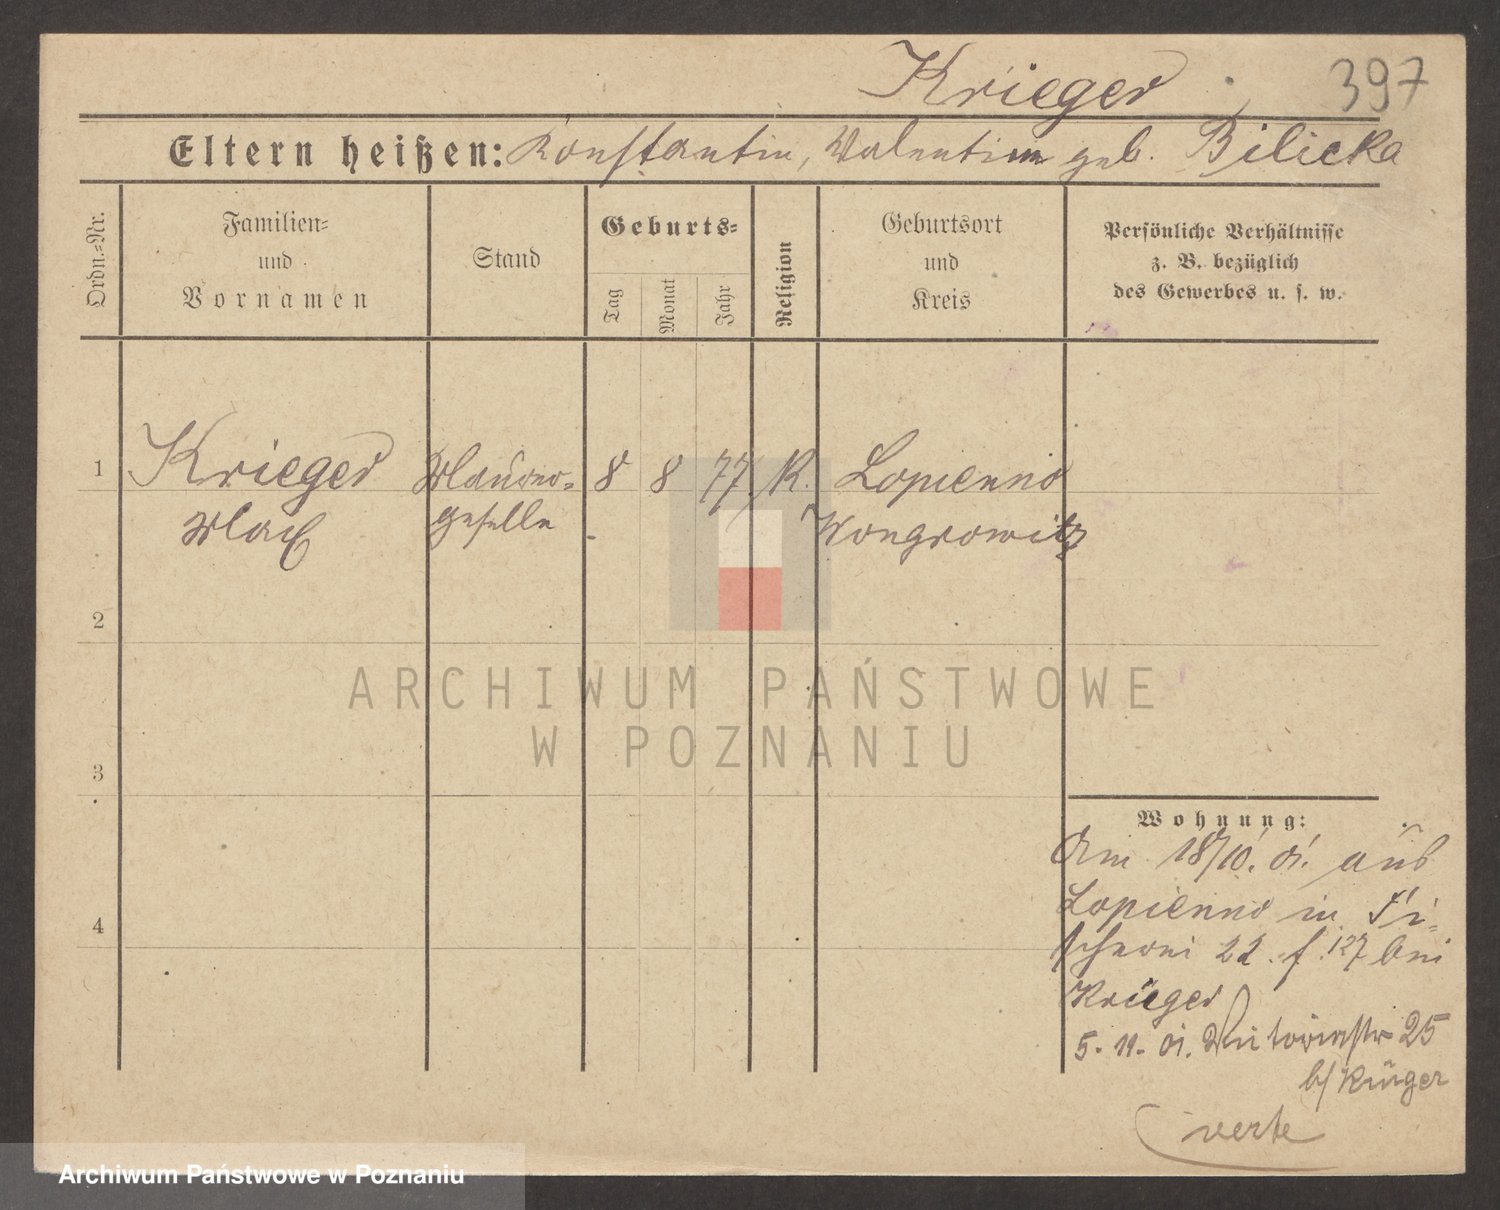 Krieger 397
Eltern heißen: Konstantin, Valentine geb. Bilicka
Ordn.=Nr.
Familien=
und
Vornamen
Stand
Geburts=
Tag
Monat
Jahr
Religion
Geburtsort
und
Kreis
Persönliche Verhältnisse
z. B. bezüglich
des Gewerbes u. s. w.
1 Krieger Maurer= 8 8 77 K. Lopienno
Max geselle Wongrowitz
2
3
4
Wohnung:
Am 18/10. 01. aus
Lopienno in Fi=
scherei 22. f. 127 bei
Krieger
5. 11. 01. 25
b/ Krieger
verte
ARCHIWUM PAŃSTWOWE
W POZNANIU
Archiwum Państwowe w Poznaniu